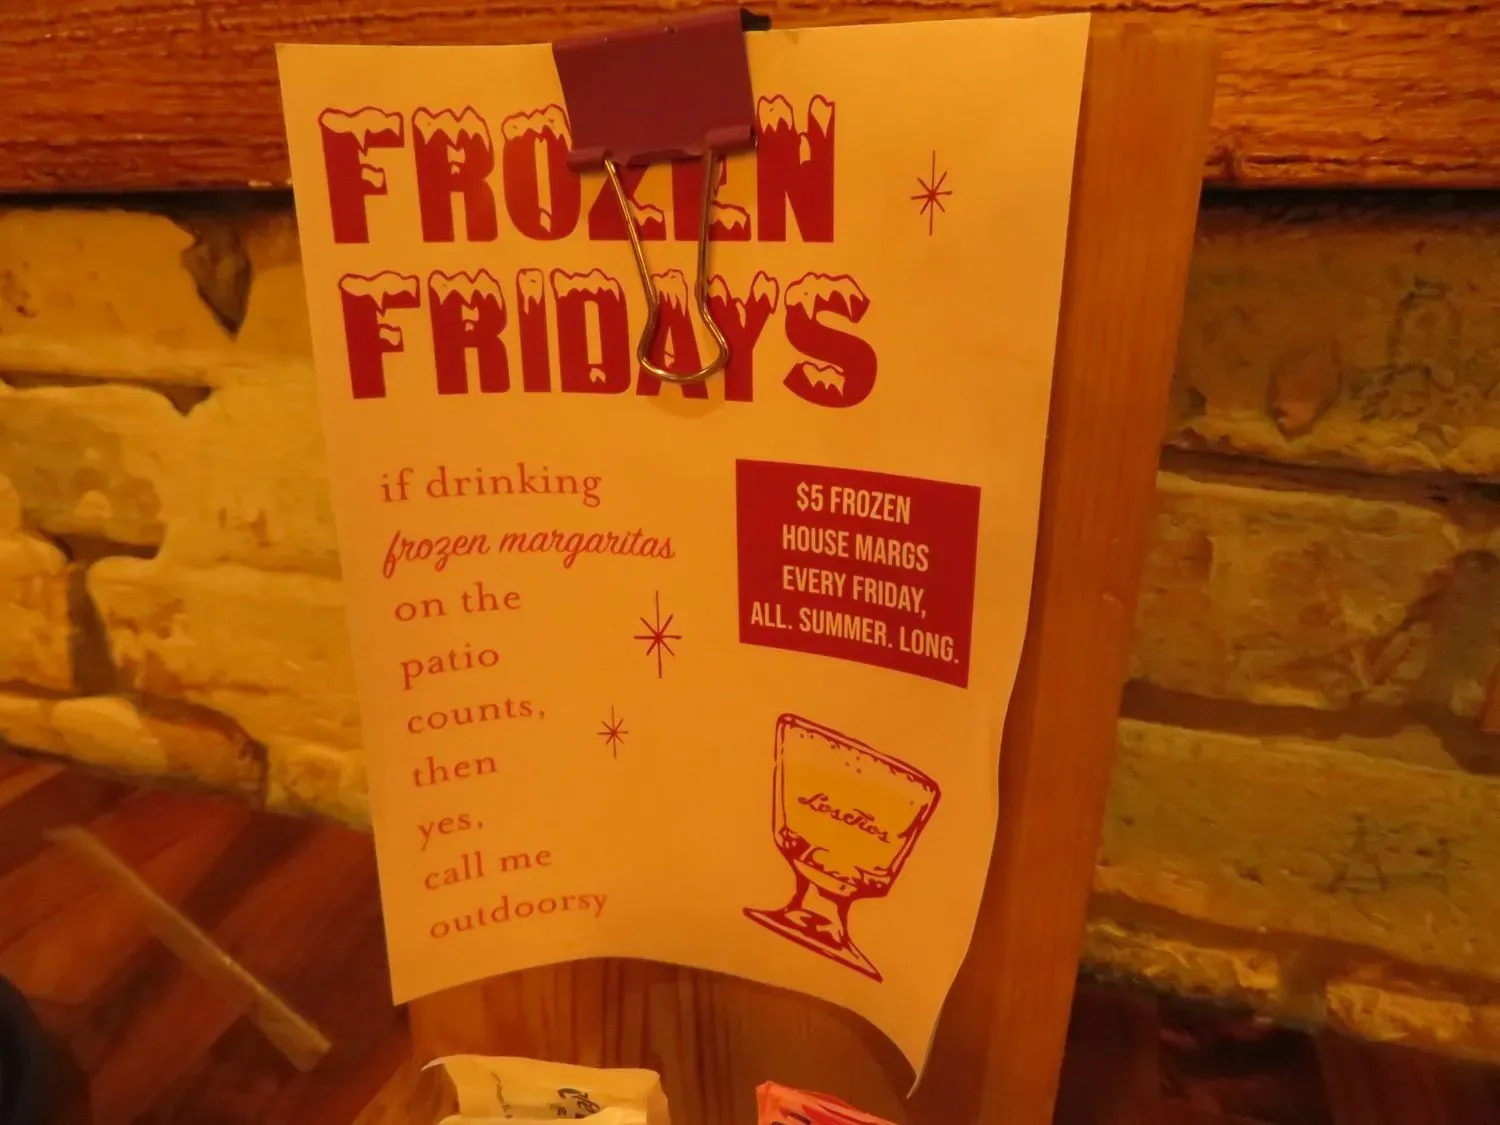 FROZEN
FRIDAYS
if drinking
frozen margaritas
on the
patio
counts,
then
yes,
call me
outdoorsy
$5 FROZEN
HOUSE MARGS
EVERY FRIDAY,
ALL. SUMMER. LONG.
Los Tios